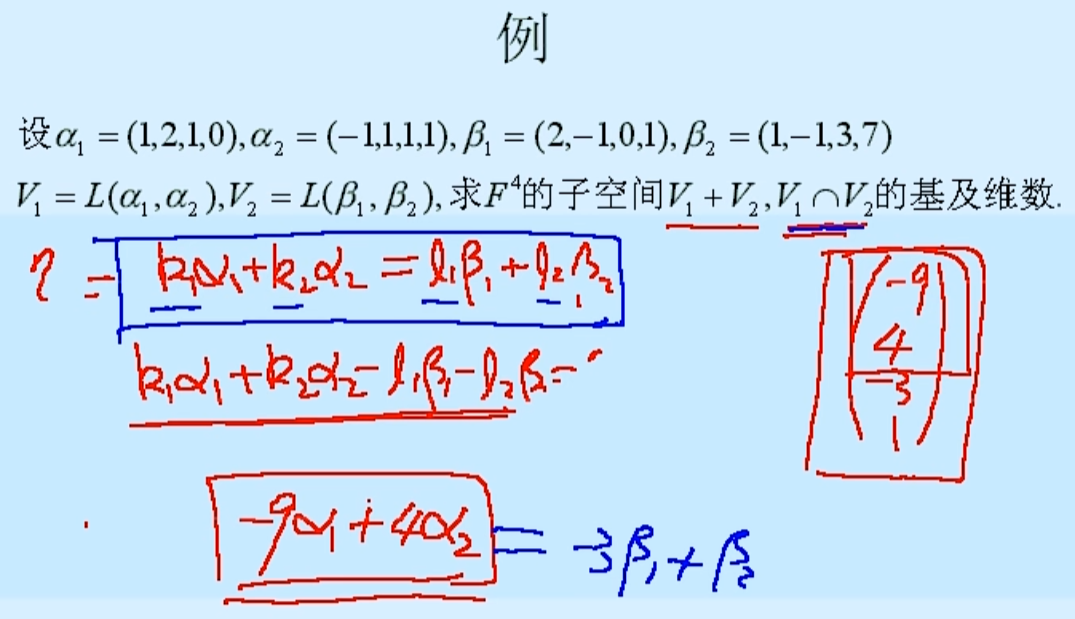 例
设α₁ = (1,2,1,0), α₂ = (−1,1,1,1), β₁ = (2,−1,0,1), β₂ = (1,−1,3,7)
V₁ = L(α₁, α₂), V₂ = L(β₁, β₂), 求F⁴的子空间V₁ + V₂, V₁ ∩ V₂的基及维数.
η = k₁α₁ + k₂α₂ = l₁β₁ + l₂β₂
k₁α₁ + k₂α₂ − l₁β₁ − l₂β₂ =
−9
4
−3
1
−9α₁ + 4α₂ = −3β₁ + β₂